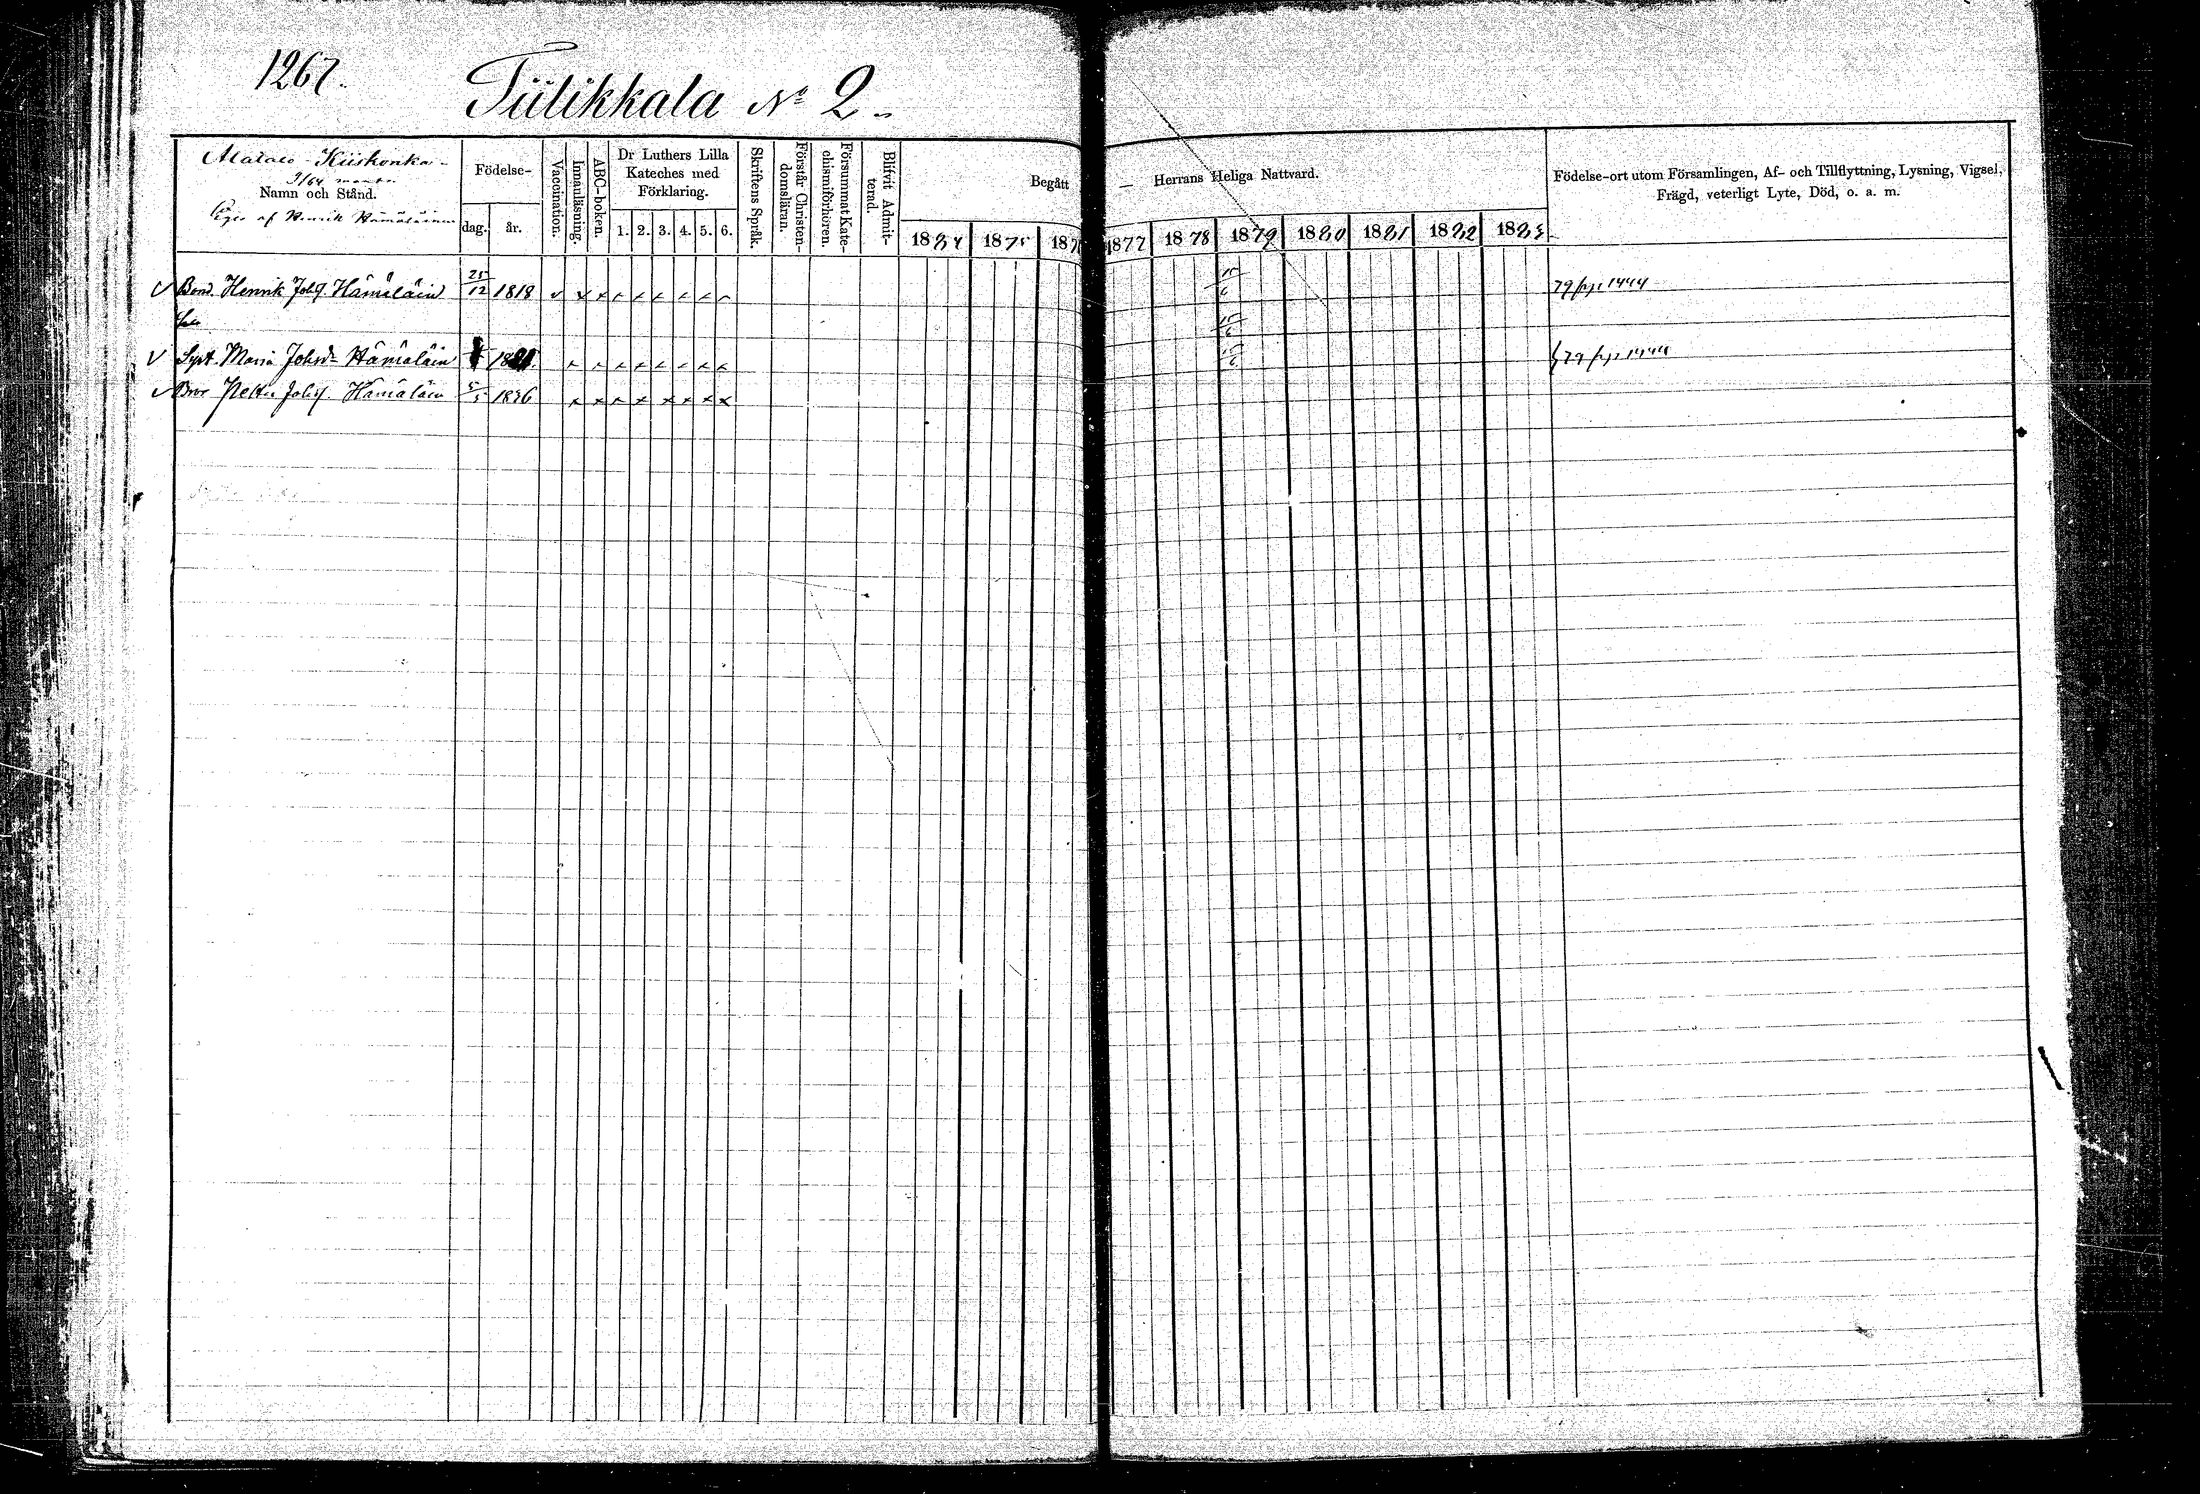 1267.
Tiilikkala No 2.
Kiiskonka
3/64
Namn och Stånd.
af Henrik Hämäläinen
Födelse-
dag.
år.
Vaccination.
Innanläsning.
ABC-boken.
Dr Luthers Lilla
Kateches med
Förklaring.
1. 2. 3. 4. 5. 6.
Skriftens Språk.
Förstår Christen-
domsläran.
Försummat Kate-
chismiförhören.
Blifvit Admit-
terad.
Begått — Herrans Heliga Nattvard.
1884 1875 187 1877 1878 1879 1880 1881 1882 1883
Födelse-ort utom Församlingen, Af- och Tillflyttning, Lysning, Vigsel,
Frägd, veterligt Lyte, Död, o. a. m.
Bond. Henrik Johs. Hämäläin 25/12 1818 79 pag 1444
Syst. Maria Johsdr Hämäläin 79 pag 1444
Bror Petter Johs. Hämäläin 5/5 1836